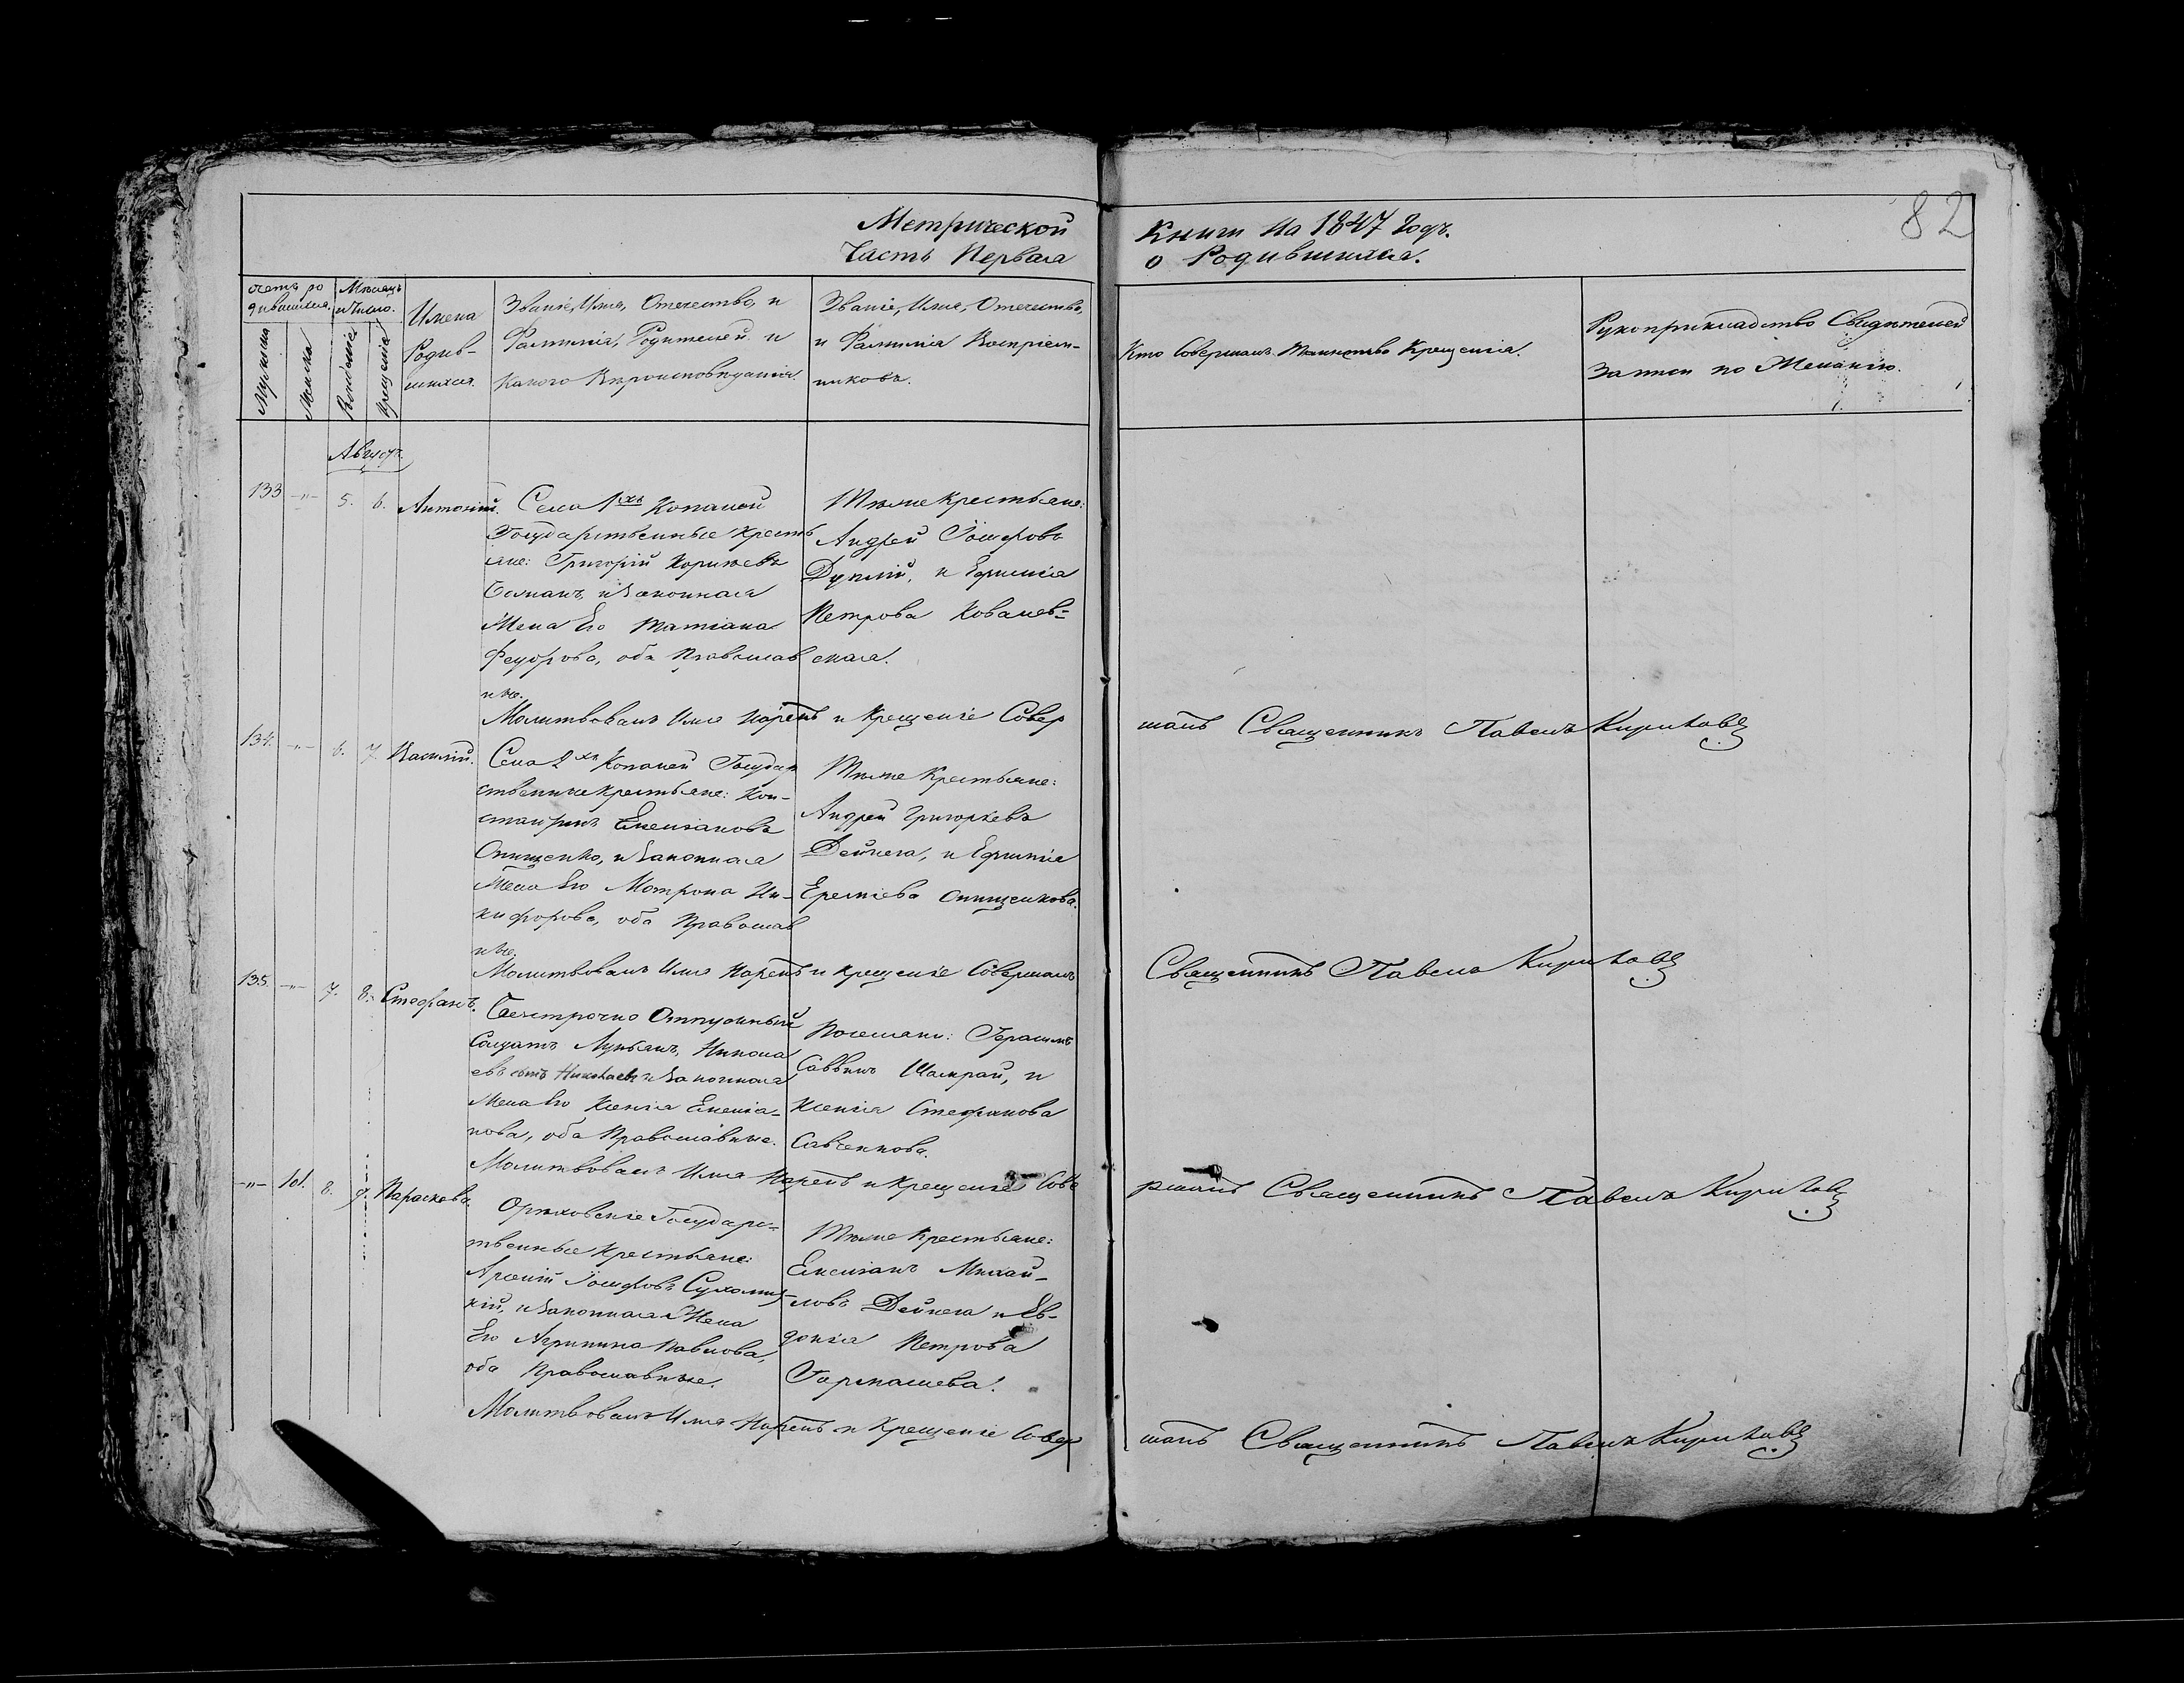 82
Метрической Книги На 1847 Годъ.
Часть Первая о Родившихся.
Счетъ ро
дившихся.
Мужеска
Женска
Мѣсяцъ
и Число.
Рожденія
Крещенія
Имена
Родив-
шихся.
Званіе, Имя, Отечество, и
Фамилія, Родителей, и
Какого Вѣроисповѣданія.
Званіе, Имя, Отечество,
и Фамилія Воспріем-
никовъ.
Кто Совершалъ Таинство Крещенія.
Рукоприкладство Свидѣтелей
Записи по Желанію.
Августъ.
133 -"- 5. 6. Антоній.
Села 1хъ Копаней
Государственные Кресть
яне: Григорій Корнѣевъ
и Законная
Жена Его Татіана
Федорова, оба Православ
ные.
Тѣже Крестьяне:
Андрей Іосифовъ
и Ефимія
Петрова Ковалев-
ская.
Молитвовалъ Имя Нарекъ и Крещеніе Совер
шалъ Священникъ Павелъ Кириловъ
134. -"- 6. 7. Василій.
Села 2хъ Копаней Государ
ственные Крестьяне: Кон-
стантинъ Емеліановъ
Онищенко, и Законная
Жена Его Мотрона Ни-
кифорова, оба Православ
ные.
Тѣже Крестьяне:
Андрей Григорьевъ
Дейнега, и Ефимія
Еремѣева Онищенкова.
Молитвовалъ Имя Нарекъ и Крещеніе Совершалъ
Священникъ Павелъ Кириловъ
135. -"- 7. 8. Стефанъ.
Безсрочно Отпускный
Солдатъ Лукьянъ, Никола
евъ сынъ Николаевъ и Законная
Жена Его Ксенія Емелія-
нова, оба Православные.
Поселяне: Герасимъ
Саввинъ Шамрай, и
Ксенія Стефанова
Савченкова.
Молитвовалъ Имя Нарекъ и Крещеніе Сове
ршалъ Священникъ Павелъ Кириловъ
-"- 101. 8. 9. Параскова.
Орѣховскіе Государс-
твенные Крестьяне:
Арсеній Іосифовъ Сухомлин
кій, и Законная Жена
Его Агрипина Павлова,
оба Православные.
Тѣже Крестьяне:
Емеліанъ Михай-
ловъ Дейнега и Ев-
докія Петрова
Гармашева.
Молитвовалъ Имя Нарекъ и Крещеніе Совер
шалъ Священникъ Павелъ Кириловъ